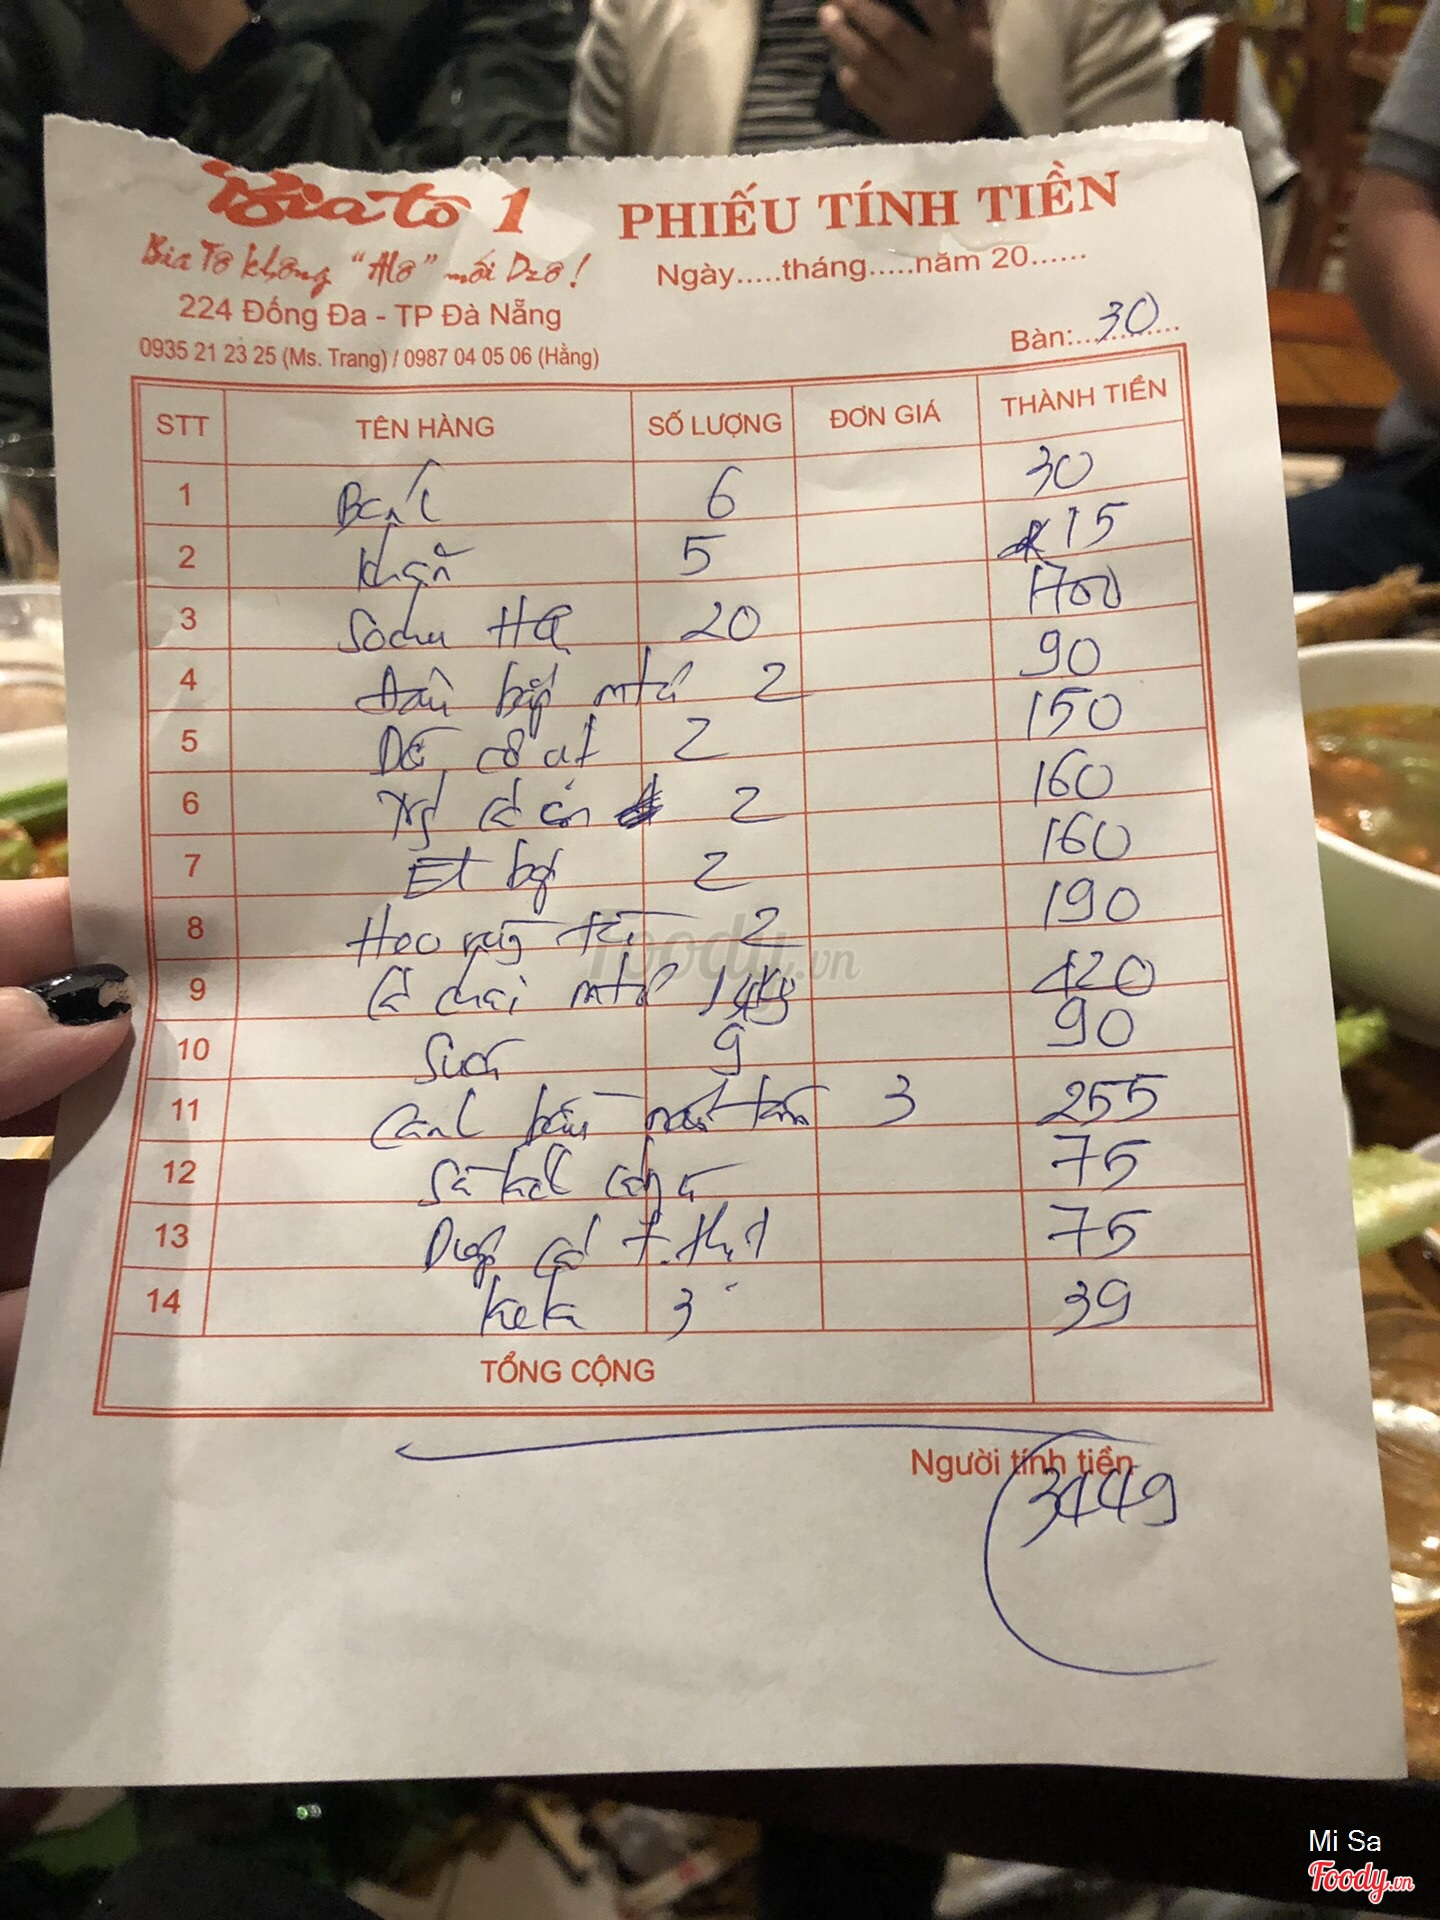 Bia tô 1
PHIẾU TÍNH TIỀN
Bia Tô không "Alo" mới Dzô!
Ngày.....tháng.....năm 20......
224 Đống Đa - TP Đà Nẵng
0935 21 23 25 (Ms. Trang) / 0987 04 05 06 (Hằng)
Bàn:.....30
STT TÊN HÀNG SỐ LƯỢNG ĐƠN GIÁ THÀNH TIỀN
1 Bánh 6 30
2 khăn 5 15
3 Sochu HQ 20 1700
4 bắp 2 90
5 Dê 2 150
6 2 160
7 Ếch 2 160
8 Heo 2 190
9 Cá 420
10 Suối 9 90
11 Canh bầu 3 255
12 75
13 75
14 keke 3 39
TỔNG CỘNG
Người tính tiền
3449
Foody.vn
Mi Sa
Foody.vn